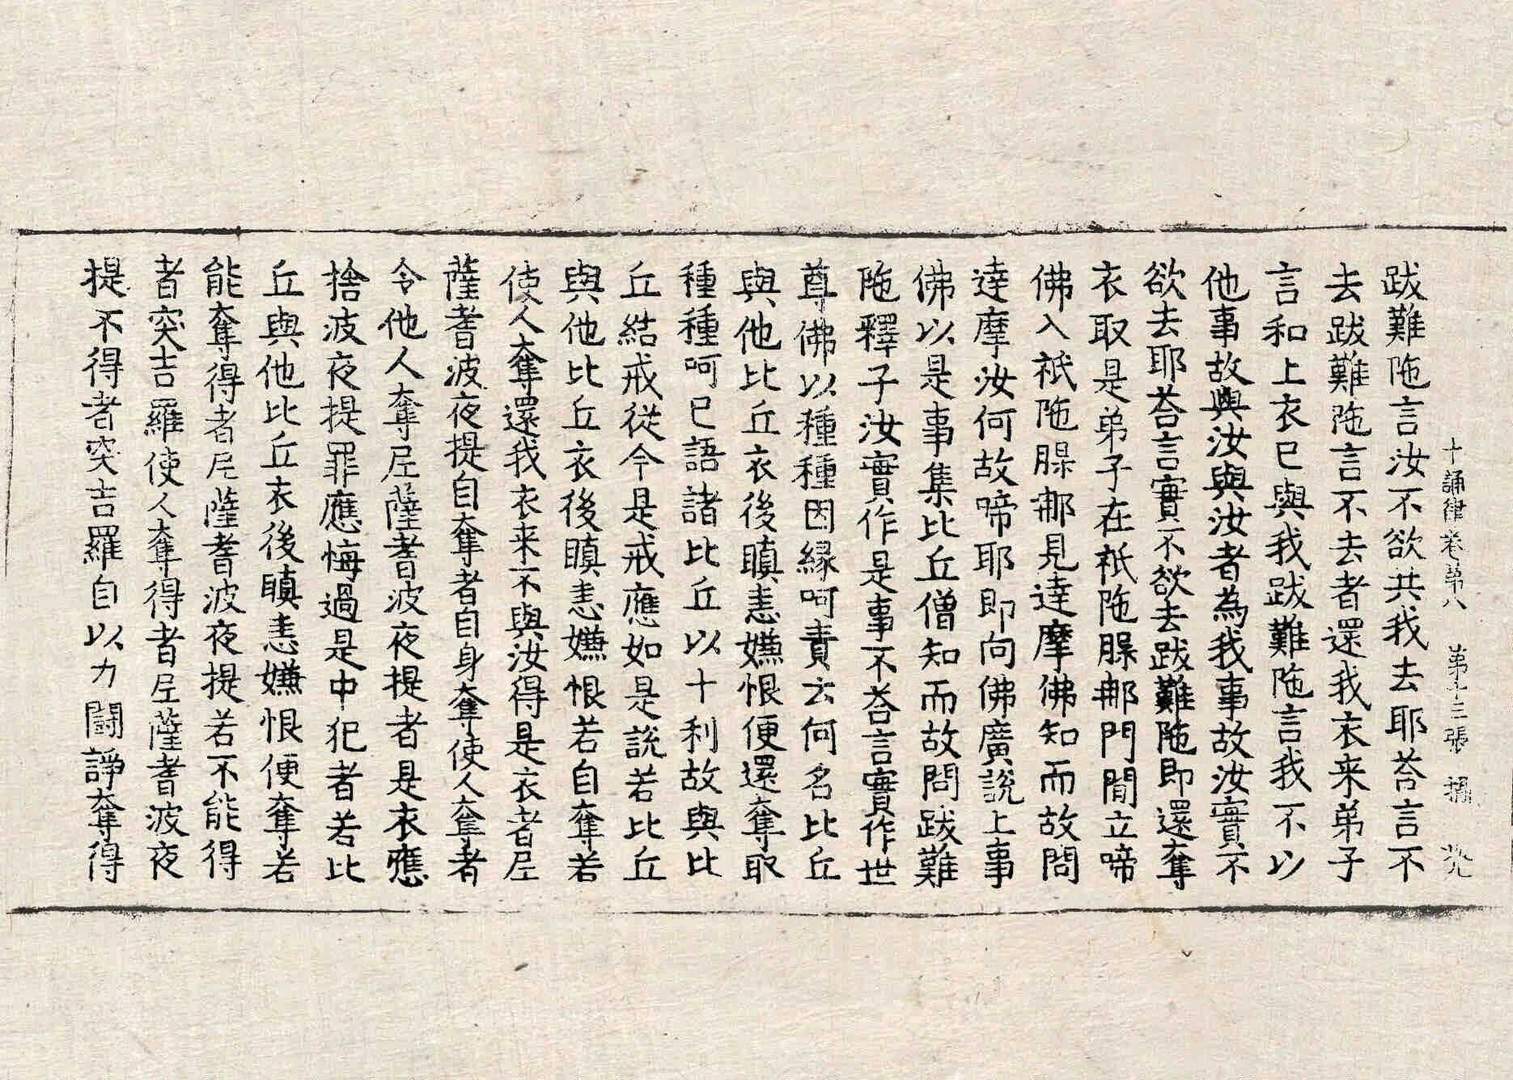 十誦律卷第八 第十三張
跋難陁言汝不欲共我去耶荅言不
去跋難陁言不去者還我衣来弟子
言和上衣已與我跋難陁言我不以
他事故與汝與汝者為我事故汝實不
欲去耶荅言實不欲去跋難陁即還奪
衣取是弟子在祇陁㬋郍門閒立啼
佛入祇陁㬋郍見達摩佛知而故問
達摩汝何故啼耶即向佛廣說上事
佛以是事集比丘僧知而故問跋難
陁釋子汝實作是事不荅言實作世
尊佛以種種因緣呵責云何名比丘
與他比丘衣後瞋恚嫌恨便還奪取
種種呵已語諸比丘以十利故與比
丘結戒從今是戒應如是說若比丘
與他比丘衣後瞋恚嫌恨若自奪若
使人奪還我衣来不與汝得是衣者尼
薩耆波夜提自奪者自身奪使人奪者
令他人奪尼薩耆波夜提者是衣應
捨波夜提罪應悔過是中犯者若比
丘與他比丘衣後瞋恚嫌恨便奪若
能奪得者尼薩耆波夜提若不能得
者突吉羅使人奪得者尼薩耆波夜
提不得者突吉羅自以力鬪諍奪得